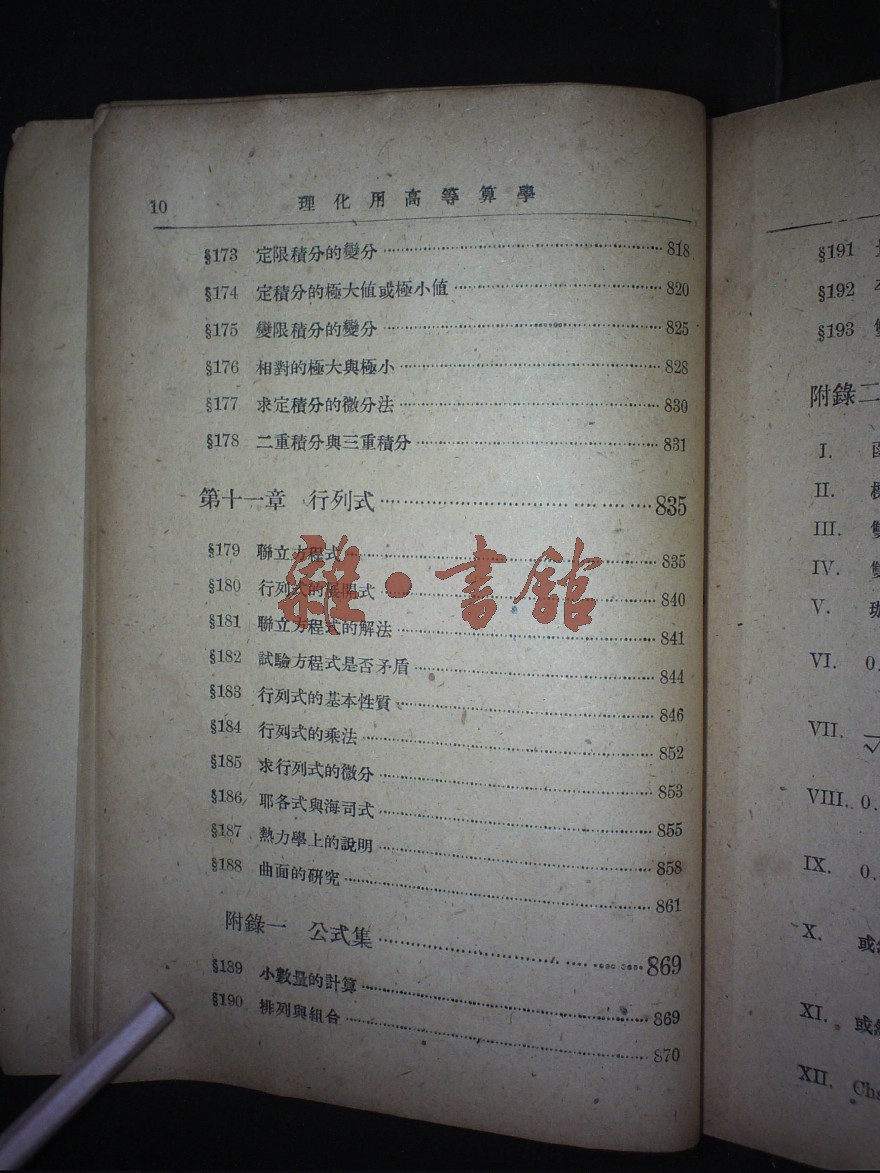 10 理化用高等算學
§173 定限積分的變分 818
§174 定積分的極大値或極小値 820
§175 變限積分的變分 825
§176 相對的極大與極小 828
§177 求定積分的微分法 830
§178 二重積分與三重積分 831
第十一章 行列式 835
§179 聯立方程式 835
§180 行列式的展開式 840
§181 聯立方程式的解法 841
§182 試驗方程式是否矛盾 844
§183 行列式的基本性質 846
§184 行列式的乘法 852
§185 求行列式的微分 853
§186 耶各式與海司式 855
§187 熱力學上的說明 858
§188 曲面的硏究 861
附錄一 公式集 869
§189 小數量的計算 869
§190 排列與組合 870
雜·書舘
§191
§192
§193
附錄二
I.
II.
III. 雙
IV. 雙
V.
VI. 0.
VII. √
VIII. 0.
IX. 0.
X. 或
XI. 或然
XII. Ch